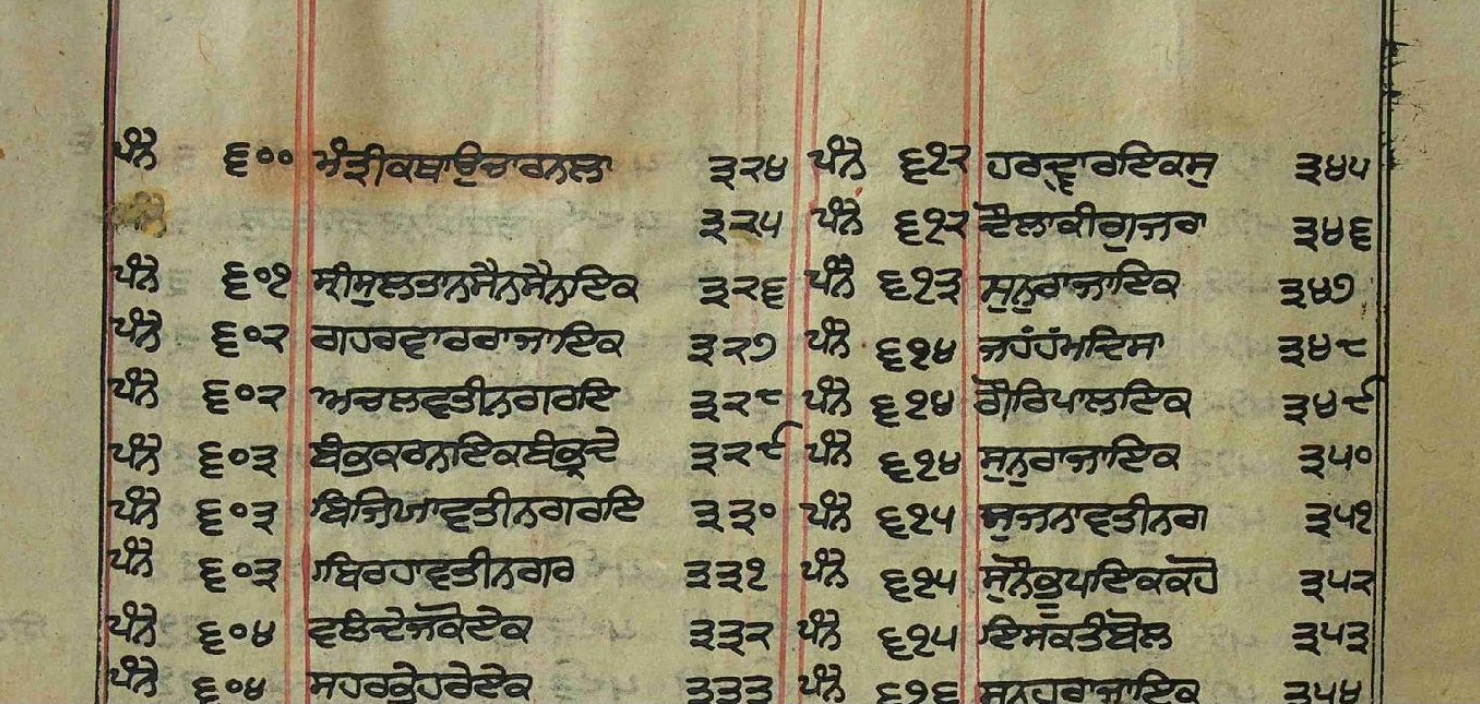 ਪੰਨੇ ੬੦੦ ਮੰਤ੍ਰੀਕਥਾਉਚਾਰਨਲਾ ੩੨੪ ਪੰਨੇ ੬੧੨ ਹਰਦ੍ਵਾਰਇਕਸੁ ੩੪੫
ਪੰਨੇ ੩੨੫ ਪੰਨੇ ੬੧੨ ਦੌਲਾਕੀਗੁਜਰਾ ੩੪੬
ਪੰਨੇ ੬੦੧ ਸ੍ਰੀਸੁਲਤਾਨਸੈਨਸੈਨਾਇਕ ੩੨੬ ਪੰਨੇ ੬੧੩ ਸੁਨੁਰਾਜਾਇਕ ੩੪੭
ਪੰਨੇ ੬੦੨ ਗਹਰਵਾਰਰਾਜਾਇਕ ੩੨੭ ਪੰਨੇ ੬੧੪ ੩੪੮
ਪੰਨੇ ੬੦੨ ਅਚਲਵਤੀਨਗਰਇ ੩੨੮ ਪੰਨੇ ੬੧੪ ਗੌਰਿਪਾਲਇਕ ੩੪੯
ਪੰਨੇ ੬੦੩ ੩੨੯ ਪੰਨੇ ੬੧੪ ਸੁਨੁਰਾਜਾਇਕ ੩੫੦
ਪੰਨੇ ੬੦੩ ਬਿਜਿਯਾਵਤੀਨਗਰਇ ੩੩੦ ਪੰਨੇ ੬੧੫ ਸੁਜਨਾਵਤੀਨਗ ੩੫੧
ਪੰਨੇ ੬੦੩ ਬਿਰਹਾਵਤੀਨਗਰ ੩੩੧ ਪੰਨੇ ੬੧੫ ਸੁਨੈਕੁਪਇਕਕਹੋ ੩੫੨
ਪੰਨੇ ੬੦੪ ਵਲੰਦੇਜਕੋਏਕ ੩੩੨ ਪੰਨੇ ੬੧੫ ਇਸਕਤੰਬੋਲ ੩੫੩
ਪੰਨੇ ੬੦੪ ਸਹਰਕੁਹਰੇਏਕ ੩੩੩ ਪੰਨੇ ੬੧੬ ਸੁਨਹੁਰਾਜਾਇਕ ੩੫੪